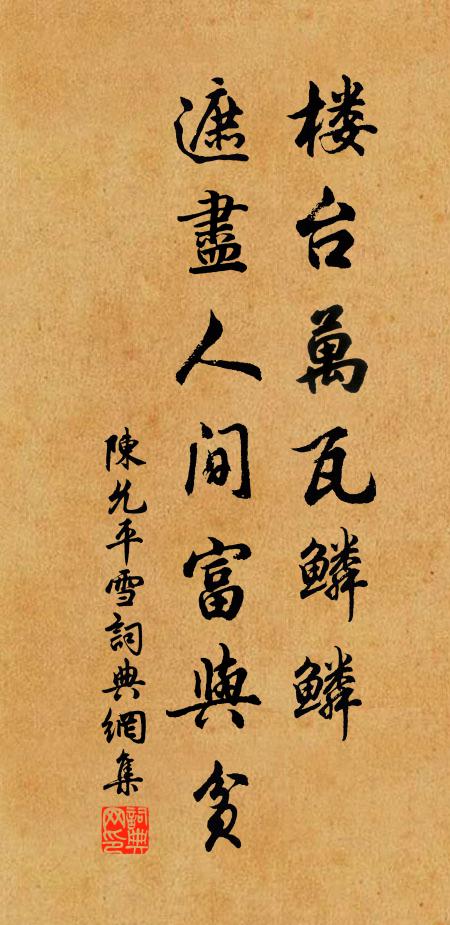 楼台萬瓦鱗鱗
遮盡人间富與貧
陳允平雪詞典網集
詞典网印